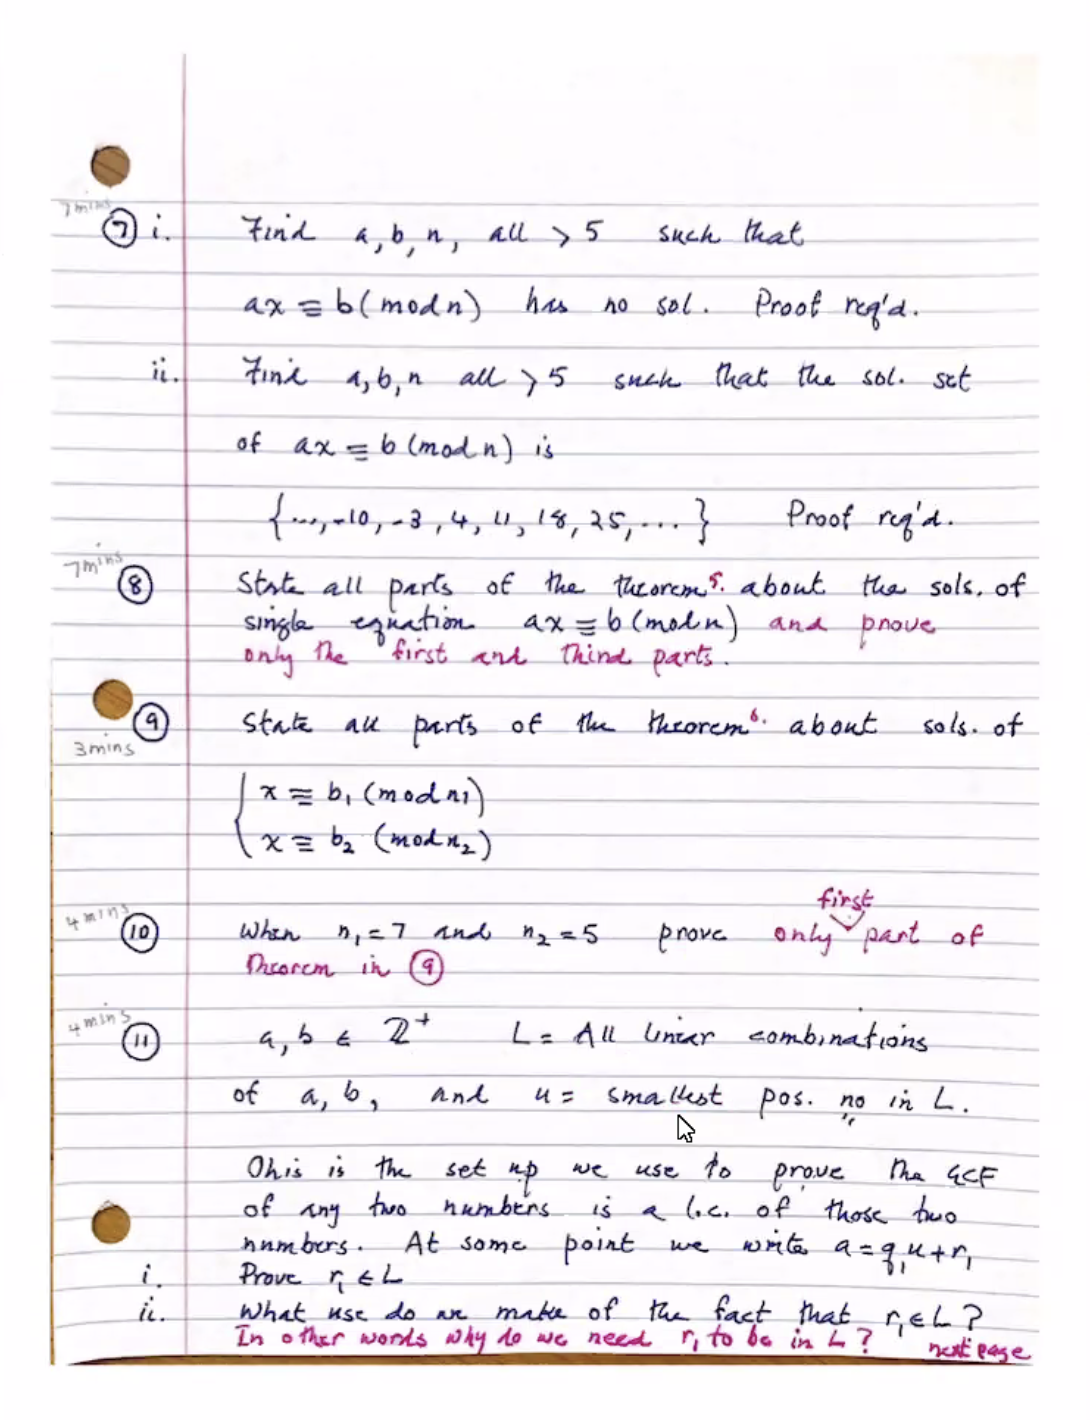 7mins
⑦ i. Find a, b, n, all > 5 such that
ax ≡ b(mod n) has no sol. Proof req'd.
ii. Find a, b, n all > 5 such that the sol. set
of ax ≡ b (mod n) is
{ ..., -10, -3, 4, 11, 18, 25, ... } Proof req'd.
7mins
⑧ State all parts of the theorem 5. about the sols. of
single equation ax ≡ b (mod n) and prove
only the first and third parts.
⑨ State all parts of the theorem 6. about sols. of
3mins
{ x ≡ b₁ (mod n₁)
x ≡ b₂ (mod n₂)
first
4mins
⑩ When n₁ = 7 and n₂ = 5 prove only part of
Theorem in ⑨
4mins
⑪ a, b ∈ ℤ⁺ L = All linear combinations
of a, b, and u = smallest pos. no in L.
This is the set up we use to prove the GCF
of any two numbers is a l.c. of those two
numbers. At some point we write a = q₁u + r₁
i. Prove r₁ ∈ L
ii. What use do we make of the fact that r₁ ∈ L?
In other words why do we need r₁ to be in L? next page